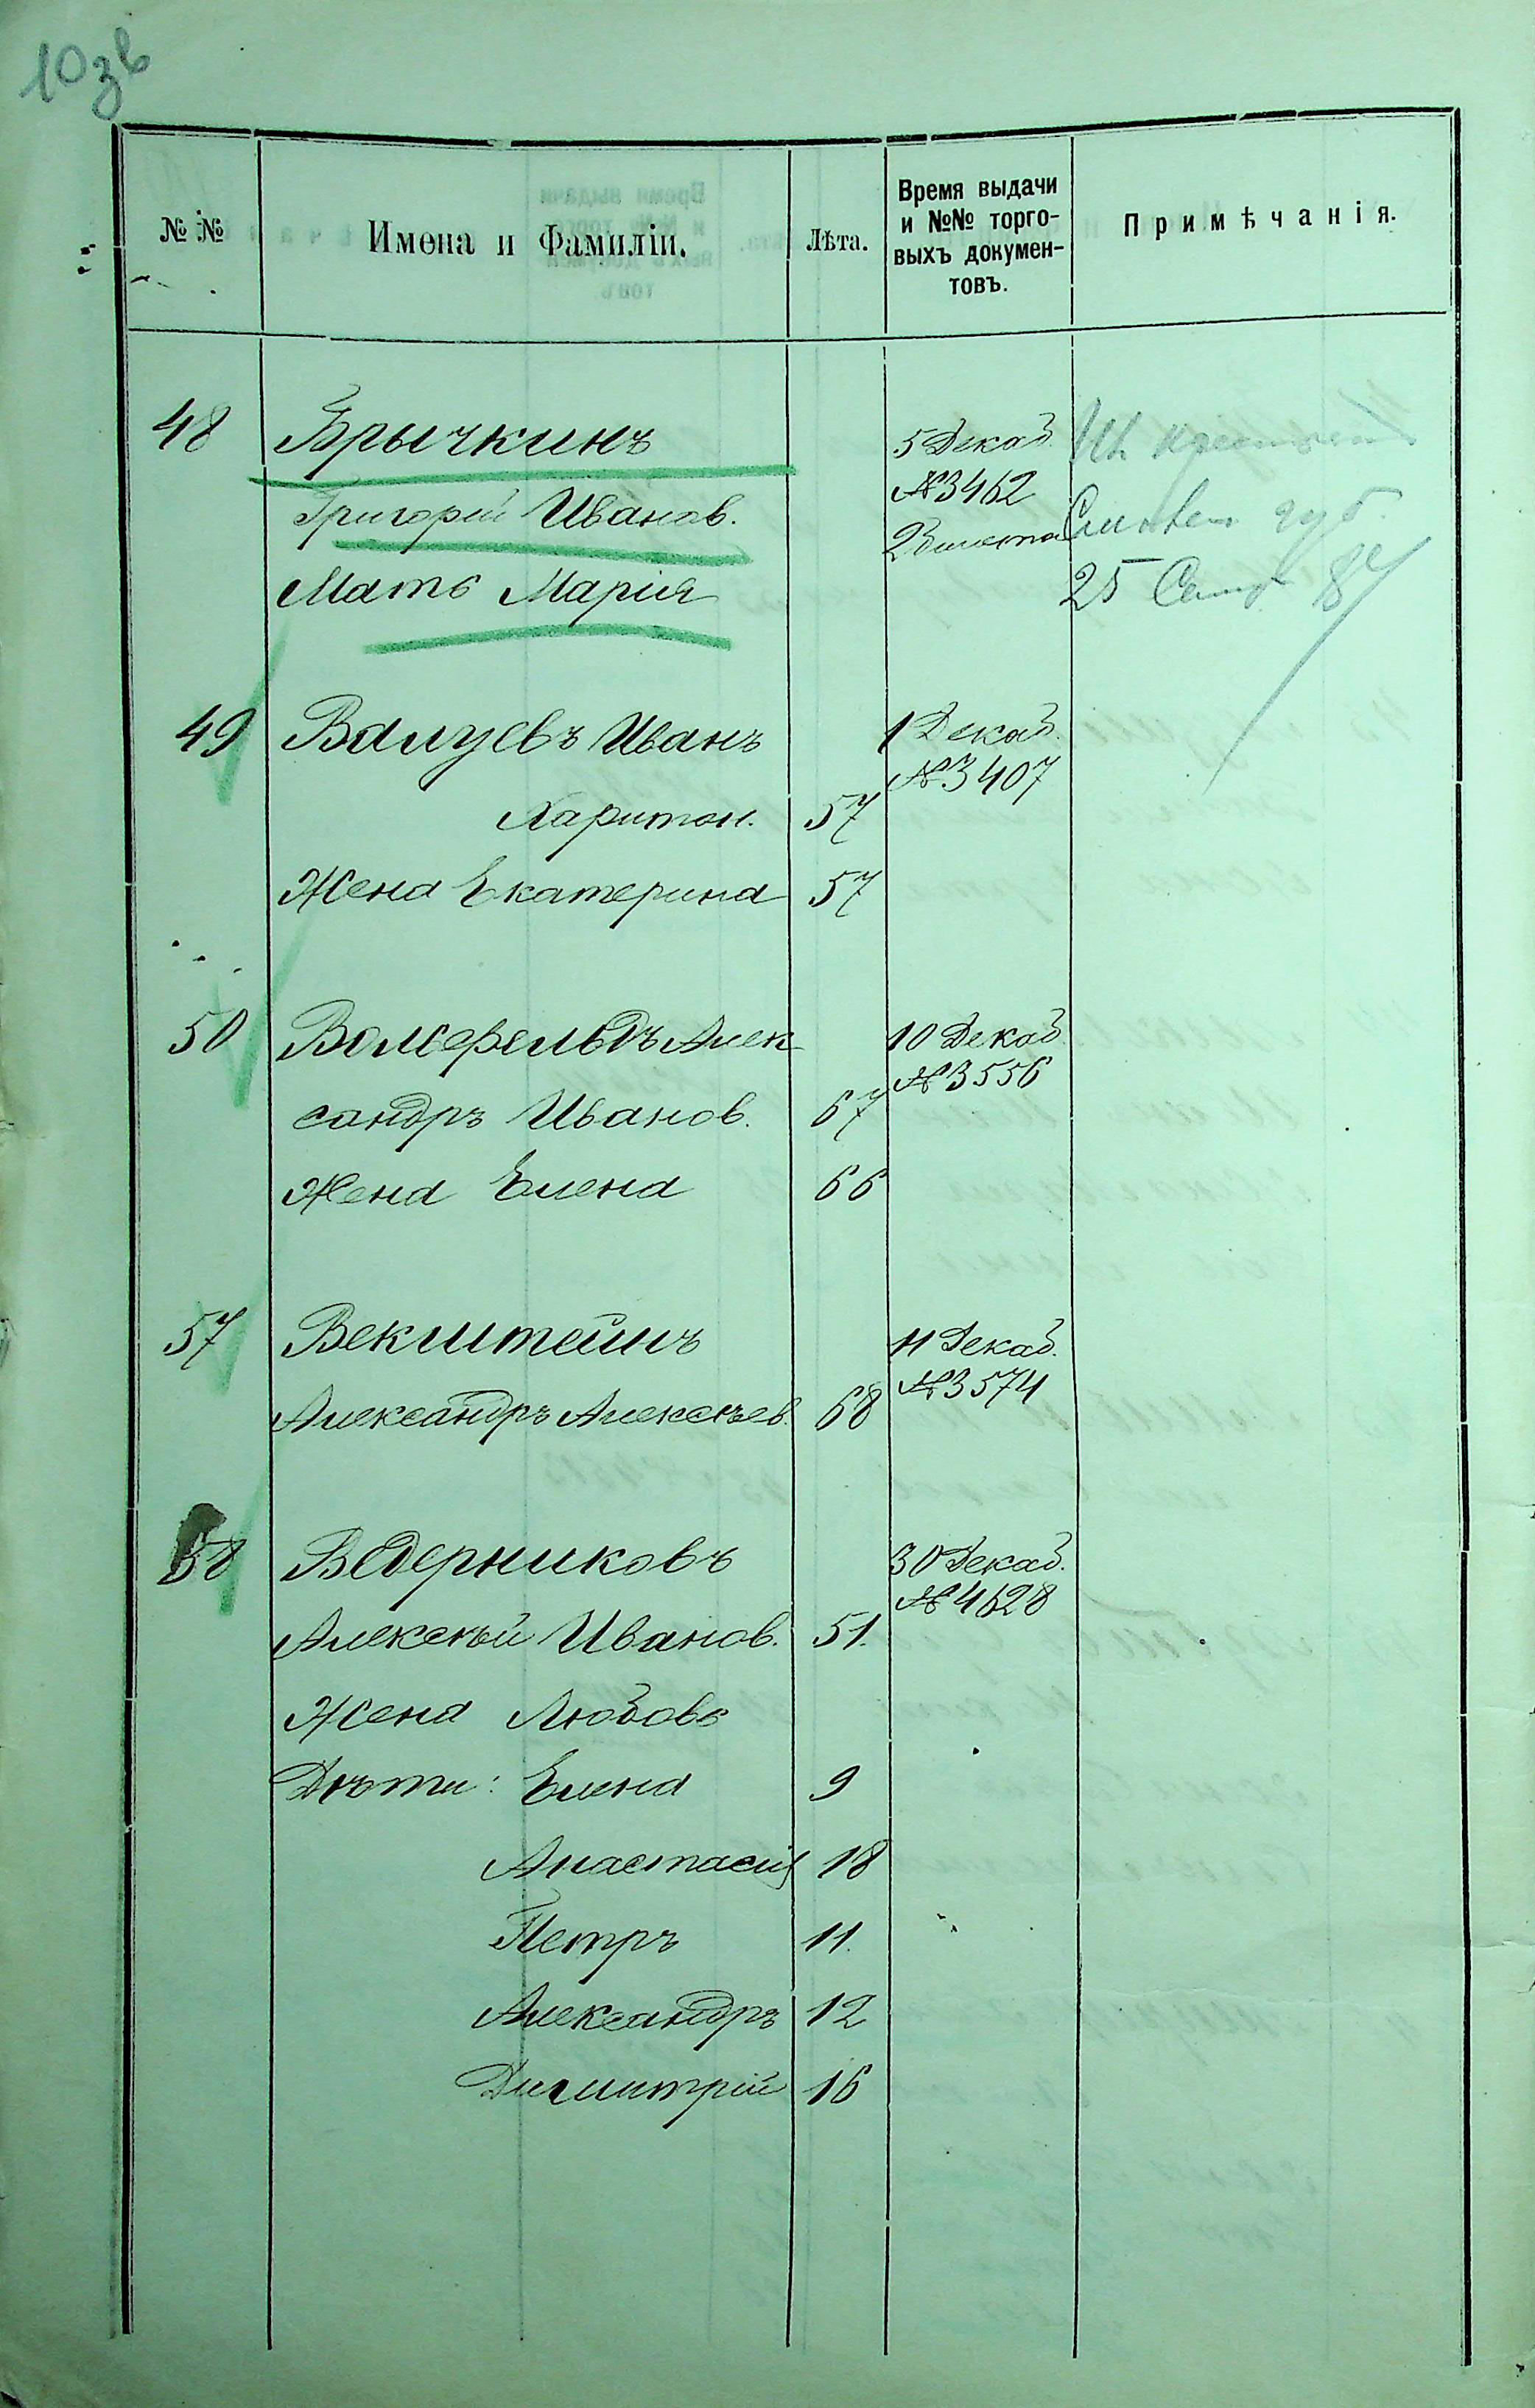 10 зв
№ №
Имена и Фамиліи.
Лѣта.
Время выдачи
и №№ торго-
выхъ докумен-
товъ.
Примѣчанія.
48 Брычкинъ 5 Декаб.
Григорій Иванов. №3462
2 билета губ.
Мать Марія 25 87
49 Валуевъ Иванъ 1 Декаб.
№3407
Харитон. 57
Жена Екатерина 57
50 Алек- 10 Декаб
№3556
сандръ Иванов. 67
Жена Елена 66
57 Векштейнъ 11 Декаб.
№3574
Александръ Алексѣев. 68
58 Ведерниковъ 30 Декаб.
№4628
Алексѣй Иванов. 51.
Жена Любовь
Дѣти: Елена 9
Анастасія 18
Петръ 11.
Александръ 12
Димитрій 16